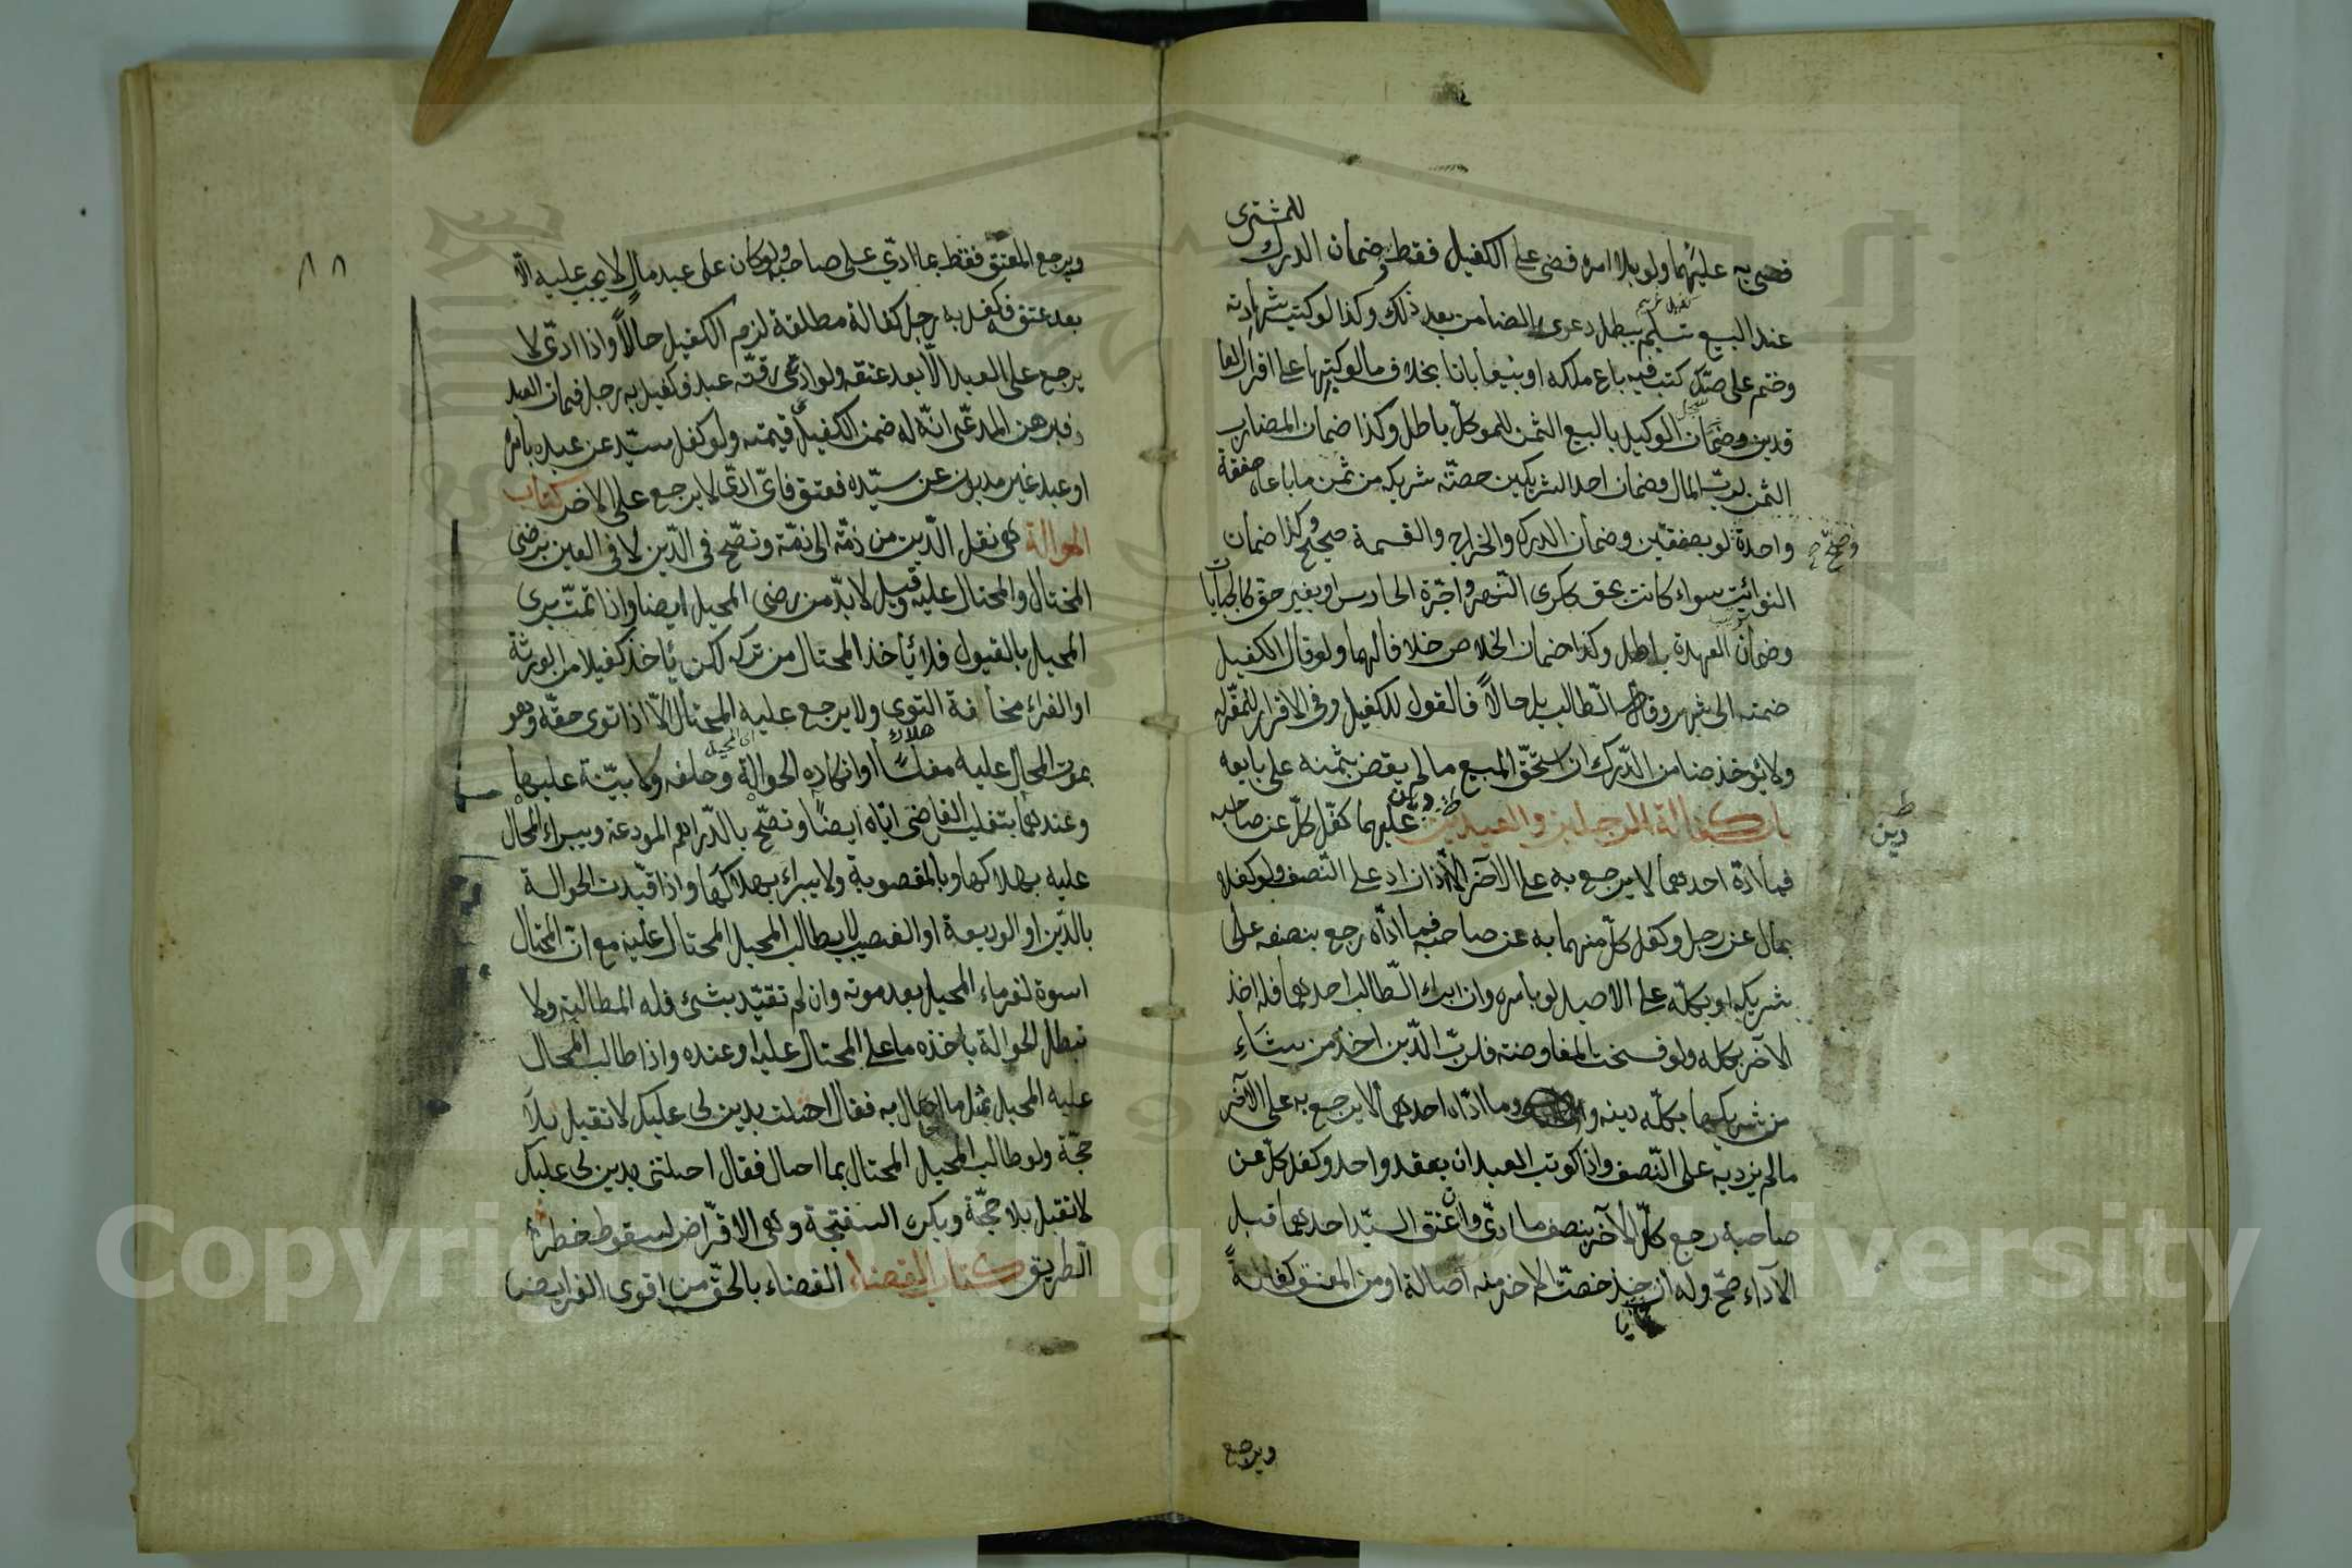 للمشترى
قضى به عليهما ولو بلا امره قضى على الكفيل فقط وضمان الدرك
عند البيع تسليم يبطل دعوى الضامن بعد ذلك وكذا لو كتب شهادته
وختم على صكّ كتب فيه باع ملكه او بيعا باتا بخلاف ما لو كتبها على اقرار العا
قدين وضمان الوكيل بالبيع الثمن للموكّل باطل وكذا ضمان المضارب
الثمن لربّ المال وضمان احد الشريكين حصّة شريكه من ثمن ما باعاه صفقة
واحدة لو بصفقتين وضمان الدرك والخراج والقسمة صحيح وكذا ضمان
النوائب سواء كانت بحق ككرى النّهر واجرة الحارس او بغير حق كالجبايات
وضمان العهدة باطل وكذا ضمان الخلاص خلافا لهما ولو قال الكفيل
ضمنته الى شهر وقال الطّالب بل حالاً فالقول للكفيل وفى الاقرار للمقرّ له
ولا يؤخذ ضامن الدّرك ان استحقّ المبيع ما لم يقض بثمنه على بايعه
باب كفالة الرجلين والعبدين دين عليهما كفّل كلّ عن صاحبه
دين
فما ادّاه احدهما لا يرجع به على الآخر الّا اذا زاد على النّصف ولو كفلا
بمال عن رجل وكفل كلّ منهما به عن صاحبه فما ادّاه رجع بنصفه على
شريكه او بكلّه على الاصيل لو بأمره وان ابرأ الطّالب احدهما فله اخذ
الآخر بكله ولو فسخت المفاوضة فلربّ الدّين اخذ من شاء
من شريكيها بكلّه دينه وما ادّاه احدهما لا يرجع به على الآخر
ما لم يزد به على النّصف واذا كوتب العبدان بعقد واحد وكفل كلّ عن
صاحبه رجع كلّ الآخر بنصف ما ادّى وان عتق السيّد احدهما قبل
الآداء صحّ وله ان يأخذ حصّة الاخر منه اصالة او من المعتق كفالةً
ويرجع
٨٨
ويرجع المعتق فقط بما ادّى على صاحبه ولو كان على عبد مال لا يجب عليه الّا
بعد عتقه فكفل به رجل كفالة مطلقة لزم الكفيل حالاً واذا ادّى لا
يرجع على العبد الّا بعد عتقه ولو ادّعى رقبة عبد فكفل به رجل فمات العبد
فبرهن المدعّى انّه له ضمن الكفيل قيمته ولو كفل سيّد عن عبده بأمره
او عبد غير مديون عن سيّده فعتق فاىّ ادّى لا يرجع على الاخر كتاب
الحوالة هى نقل الدّين من ذمّة الى ذمّة وتصّح فى الدّين لا فى العين برضى
المحتال والمحتال عليه وقيل لا بدّ من رضى المحيل ايضا واذا تمّت برى
المحيل بالقبول فلا يأخذ المحتال من تركه لكن يأخذ كفيلا من الورثة
او الغرماء مخافة التوى ولا يرجع عليه المحتال الّا اذا توى حقّه وهو
هلاك
بموت المحال عليه مفلسًا او انكاره الحوالة وحلفه ولا بيّنة عليها
وعندهما بتفليس القاضى ايّاه ايضًا وتصّح بالدّراهم المودعة ويبرأ المحال
عليه بهلاكها وبالمغصوبة ولا يبراء بهلاكها واذا قيّدت الحوالة
بالدّين او الوديعة او الغصب لا يطالب المحيل المحتال عليه مع انّ المحتال
اسوة لغرماء المحيل بعد موته وان لم تقيّد بشئ فله المطالبة ولا
تبطل الحوالة باخذه ما على المحتال عليه او عنده واذا طالب المحال
عليه المحيل بمثل ما احال به فقال احلت بدين لى عليك لا تقبل بلا
حجّة ولو طالب المحيل المحتال بما احال فقال احلتنى بدين لى عليك
لا تقبل بلا حجّة ويكره السفتجة وهى الاقراض لسقوط خطر
الطريق كتاب القضاء القضاء بالحقّ من اقوى الفرايض
Copyright © King Saud University